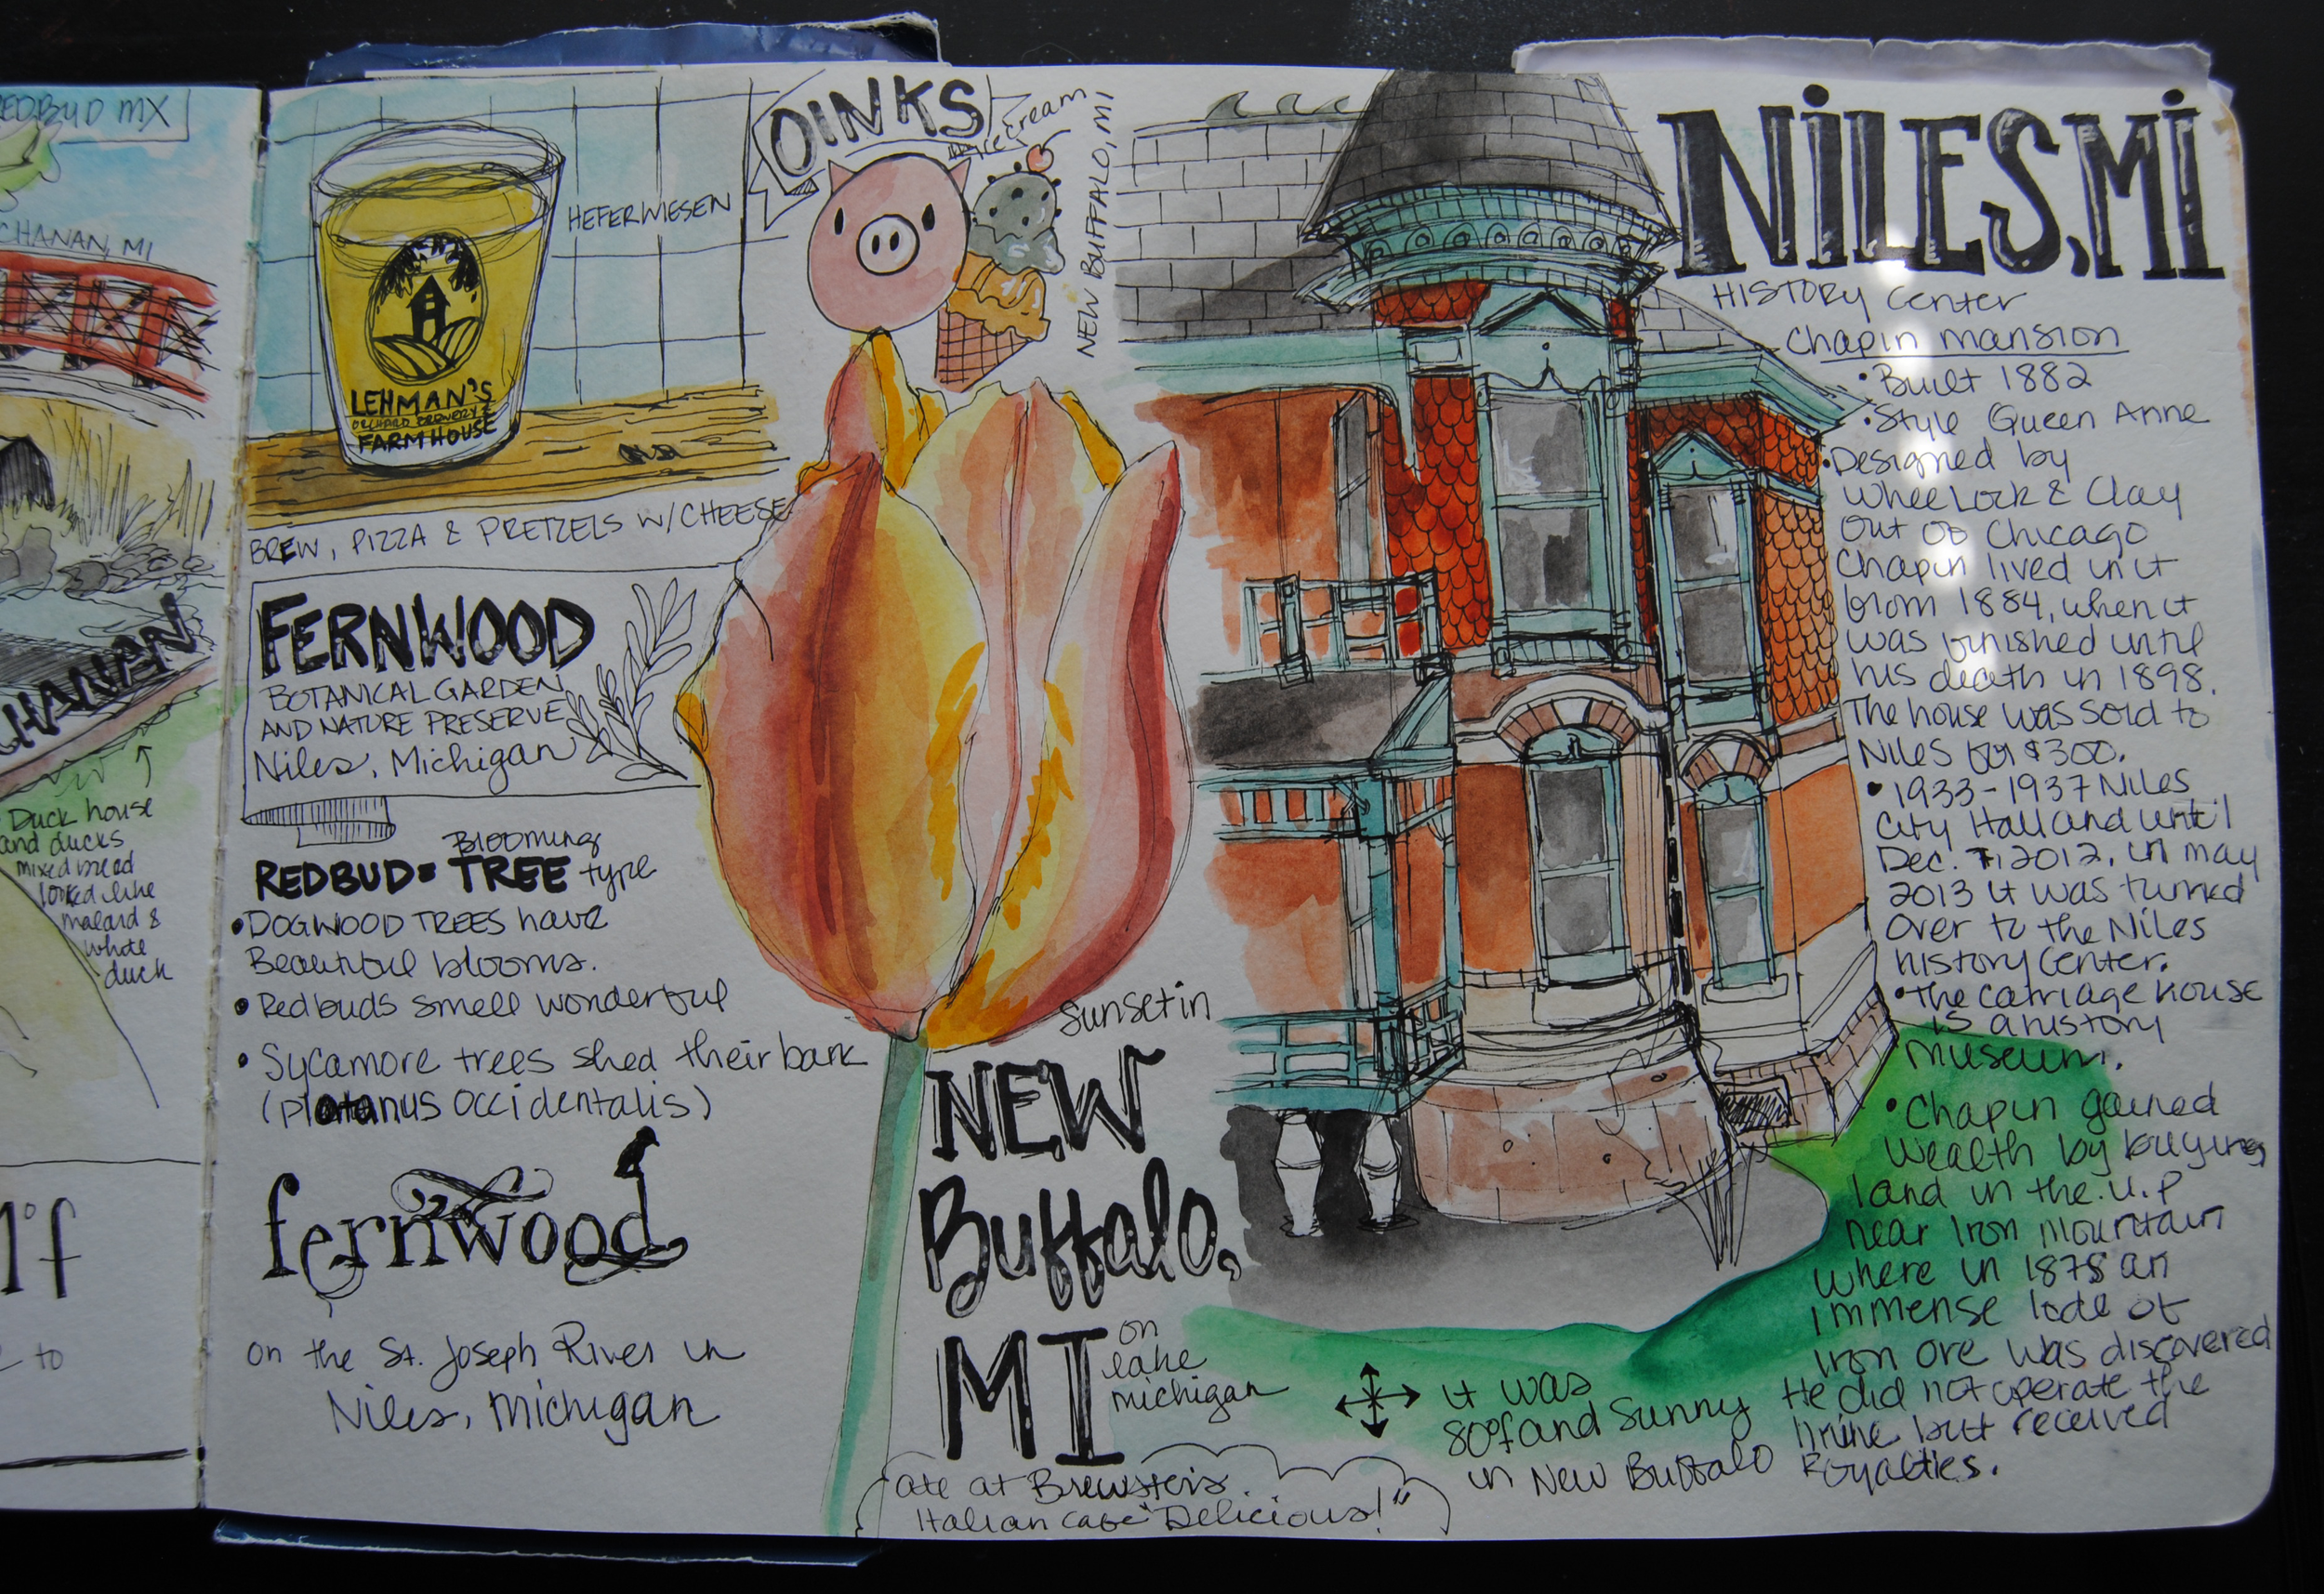 REDBUD MX
CHANAN, MI
CHANAN
Duck house
and ducks
mixed breed
looked like
malard &
white
duck
to
HEFERWIESEN
LEHMAN'S
ORCHARD BREWERY &
FARMHOUSE
BREW, PIZZA & PRETZELS W/CHEESE
FERNWOOD
BOTANICAL GARDEN
AND NATURE PRESERVE
Niles, Michigan
Blooming
REDBUD= TREE type
•DOGWOOD TREES have
Beautiful blooms.
•Redbuds smell wonderful
• Sycamore trees shed their bark
(platanus occidentalis)
fernwood
on the St. Joseph River in
Niles, michigan
OINKS
ice cream
NEW BUFFALO, MI
Sunset in
NEW
Buffalo,
MI
on
lake
michigan
ate at Brewster's
Italian cafe "Delicious!"
NILES, MI
HISTORY Center
Chapin mansion
•Built 1882
•Style Queen Anne
•Designed by
Wheelock & Clay
out of Chicago
Chapin lived in it
from 1884, when it
was finished until
his death in 1898.
The house was sold to
Niles for $300.
• 1933-1937 Niles
City Hall and until
Dec. 7, 2012, in may
2013 it was turned
over to the Niles
history center.
•The carriage house
is a history
museum.
•Chapin gained
wealth by buying
land in the U.P
near Iron mountain
where in 1878 an
immense lode of
iron ore was discovered
He did not operate the
mine but received
Royalties.
it was
80°f and sunny
in New Buffalo